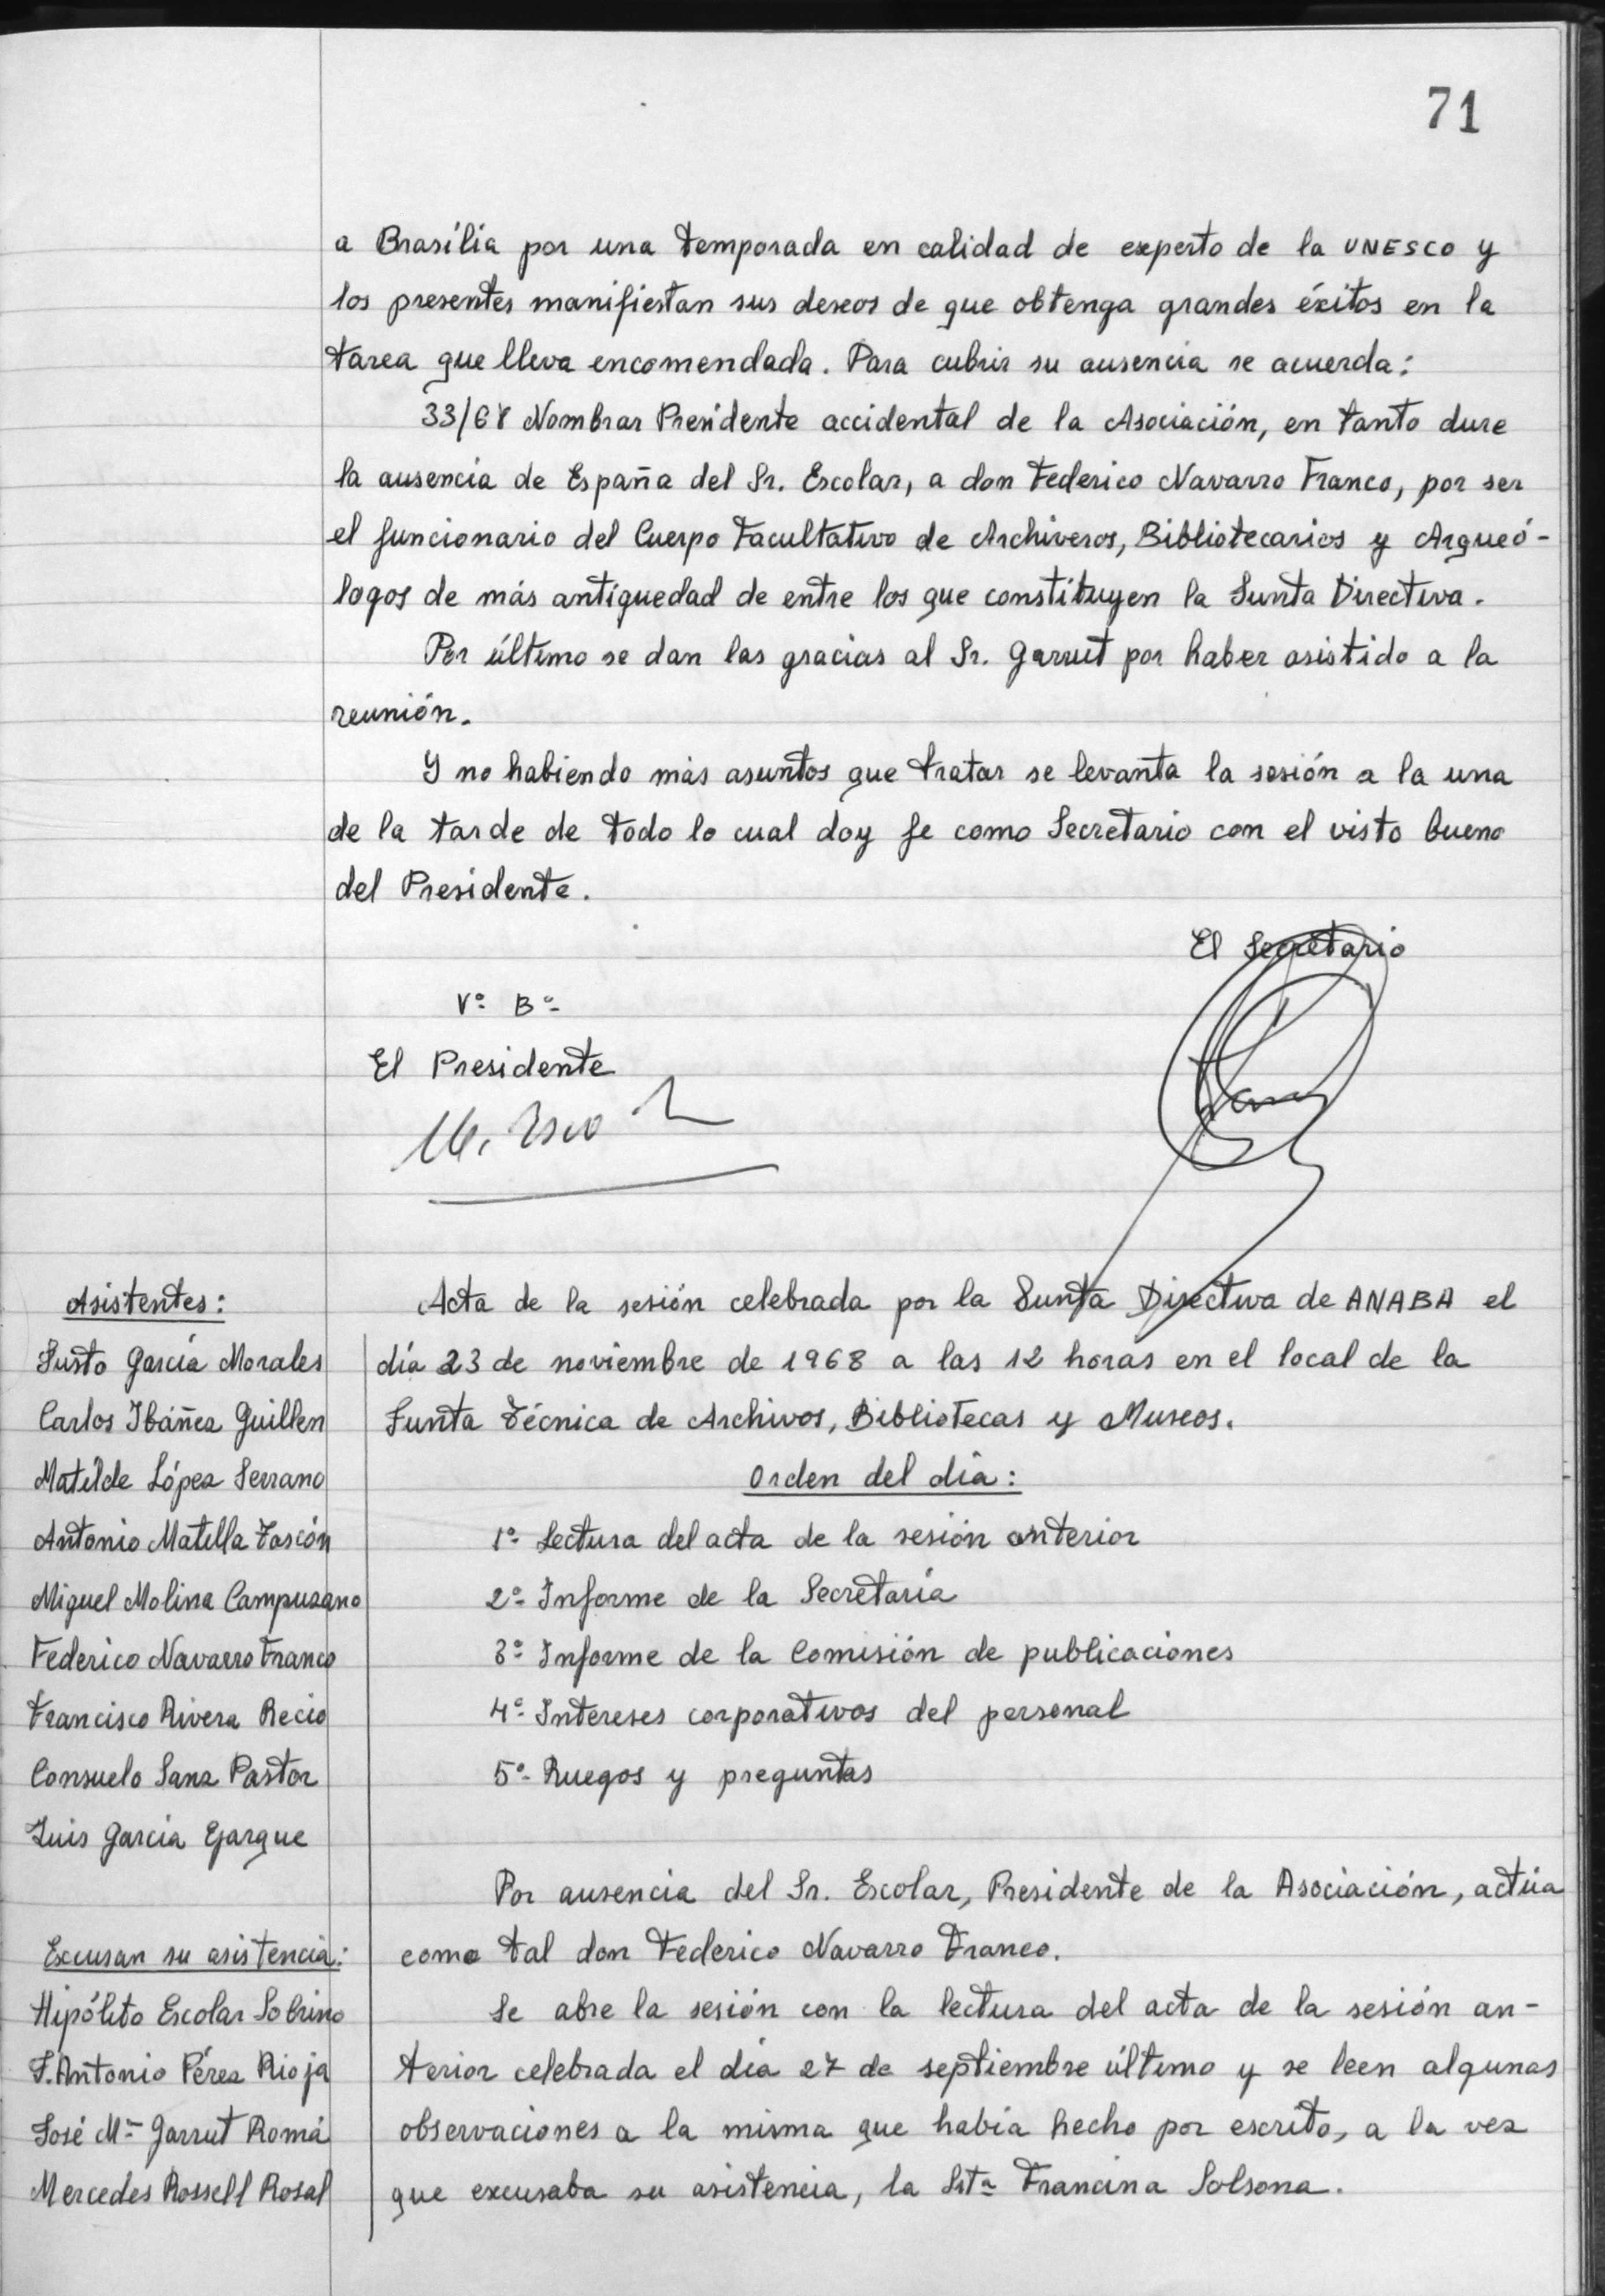 71
a Brasília por una temporada en calidad de experto de la UNESCO y
los presentes manifiestan sus deseos de que obtenga grandes éxitos en la
tarea que lleva encomendada. Para cubrir su ausencia se acuerda:
33/68 Nombrar Presidente accidental de la Asociación, en tanto dure
la ausencia de España del Sr. Escolar, a don Federico Navarro Franco, por ser
el funcionario del Cuerpo Facultativo de Archiveros, Bibliotecarios y Arqueó-
logos de más antiguedad de entre los que constituyen la Junta Directiva.
Por último se dan las gracias al Sr. Garrut por haber asistido a la
reunión.
Y no habiendo más asuntos que tratar se levanta la sesión a la una
de la tarde de todo lo cual doy fe como Secretario con el visto bueno
del Presidente.
El Secretario
Vº Bº
El Presidente
Asistentes:
Justo García Morales
Carlos Ibáñez Guillen
Matilde López Serrano
Antonio Matilla Tascón
Miguel Molina Campuzano
Federico Navarro Franco
Francisco Rivera Recio
Consuelo Sanz Pastor
Luis García Ejarque
Excusan su asistencia:
Hipólito Escolar Sobrino
J. Antonio Pérez Rioja
José Mª Garrut Romá
Mercedes Rossell Rosal
Acta de la sesión celebrada por la Junta Directiva de ANABA el
día 23 de noviembre de 1968 a las 12 horas en el local de la
Junta Técnica de Archivos, Bibliotecas y Museos.
Orden del día:
1º Lectura del acta de la sesión anterior
2º Informe de la Secretaría
3º Informe de la Comisión de publicaciones
4º Intereses corporativos del personal
5º Ruegos y preguntas
Por ausencia del Sr. Escolar, Presidente de la Asociación, actúa
como tal don Federico Navarro Franco.
Se abre la sesión con la lectura del acta de la sesión an-
terior celebrada el día 27 de septiembre último y se leen algunas
observaciones a la misma que había hecho por escrito, a la vez
que excusaba su asistencia, la Srtª Francina Solsona.